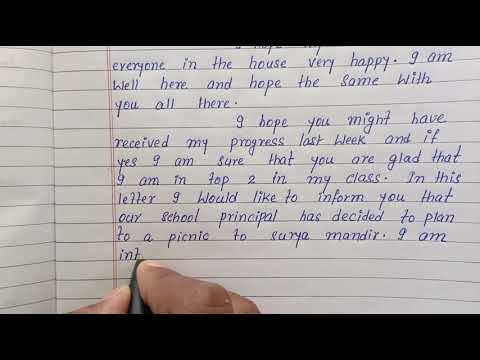 everyone in the house very happy. I am
well here and hope the same with
you all there.
I hope you might have
received my progress last week and if
yes I am sure that you are glad that
I am in top 2 in my class. In this
letter I would like to inform you that
our school principal has decided to plan
to a picnic to surya mandir. I am
int